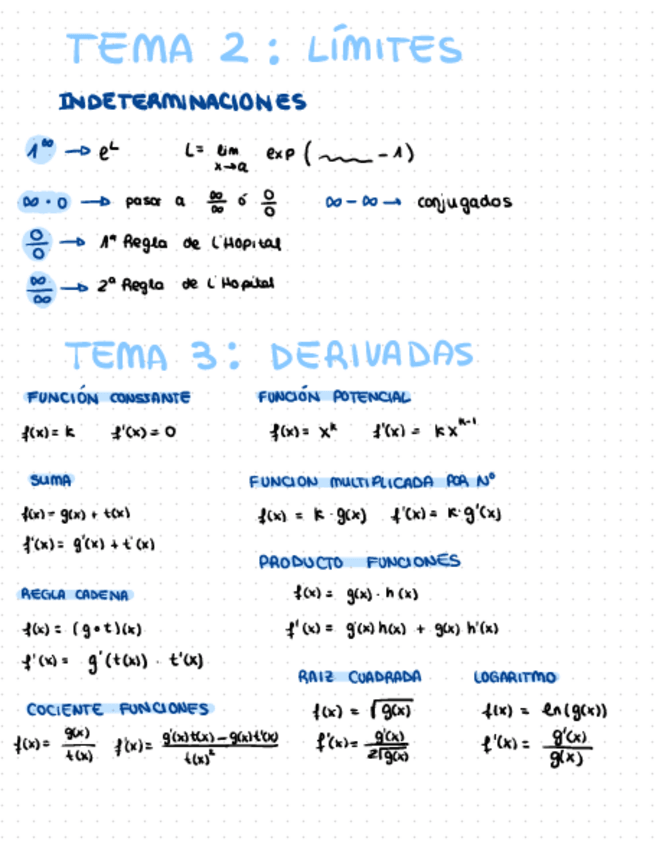 TEMA 2: LÍMITES
INDETERMINACIONES
1^∞ → e^L L = lim x→a exp ( ___ - 1)
∞ · 0 → pasar a ∞/∞ ó 0/0 ∞ - ∞ → conjugados
0/0 → 1ª Regla de L'Hopital
∞/∞ → 2ª Regla de L'Hopital
TEMA 3: DERIVADAS
FUNCIÓN CONSTANTE
f(x) = k f'(x) = 0
FUNCIÓN POTENCIAL
f(x) = x^k f'(x) = kx^(k-1)
SUMA
f(x) = g(x) + t(x)
f'(x) = g'(x) + t'(x)
FUNCION MULTIPLICADA POR Nº
f(x) = k · g(x) f'(x) = k · g'(x)
PRODUCTO FUNCIONES
f(x) = g(x) · h(x)
f'(x) = g'(x) h(x) + g(x) h'(x)
REGLA CADENA
f(x) = (g∘t)(x)
f'(x) = g'(t(x)) · t'(x)
RAIZ CUADRADA
f(x) = √g(x)
f'(x) = g'(x)/2√g(x)
LOGARITMO
f(x) = ln(g(x))
f'(x) = g'(x)/g(x)
COCIENTE FUNCIONES
f(x) = g(x)/t(x) f'(x) = g'(x)t(x) - g(x)t'(x)/t(x)²